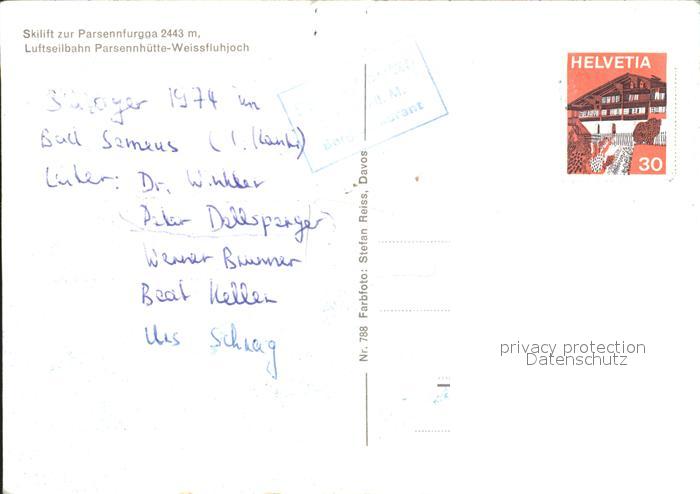 Skilift zur Parsennfurgga 2443 m,
Luftseilbahn Parsennhütte-Weissfluhjoch
1974 im
Bad (1. Kanti)
Leiter: Dr. Winkler
Peter Dallsperger
Werner Brunner
Beat Keller
Urs Schnag
Nr. 788 Farbfoto: Stefan Reiss, Davos
HELVETIA
30
privacy protection
Datenschutz